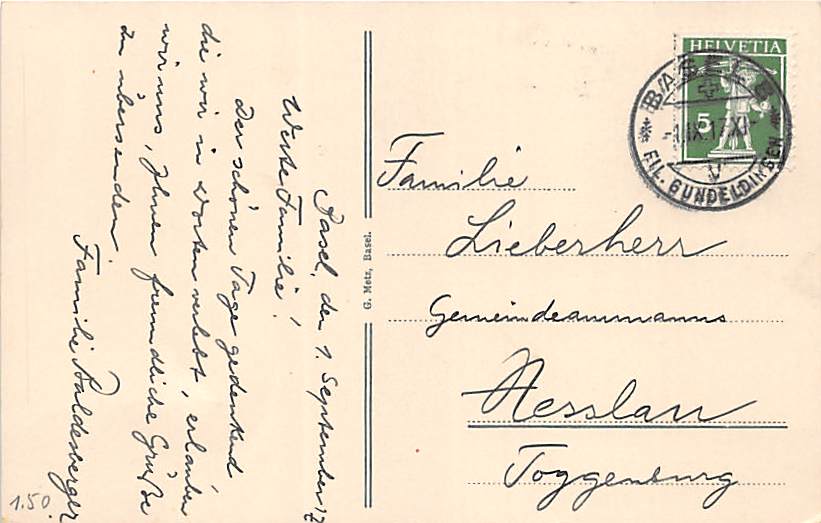 Basel, den 1. September 17
Werte Familie!
Der schönen Tage gedenkend
die wir in dorten verlebt, erlauben
wir uns, Ihnen freundliche Grüße
zu übersenden.
Familie Baldesberger
1.50
G. Metz, Basel.
HELVETIA
5
BASEL
-1.IX.17.XI-
FIL. GUNDELDINGEN
Familie
Lieberherr
Gemeindeammanns
Nesslau
Toggenburg